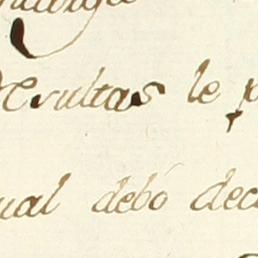 resultas le
ual debó dec